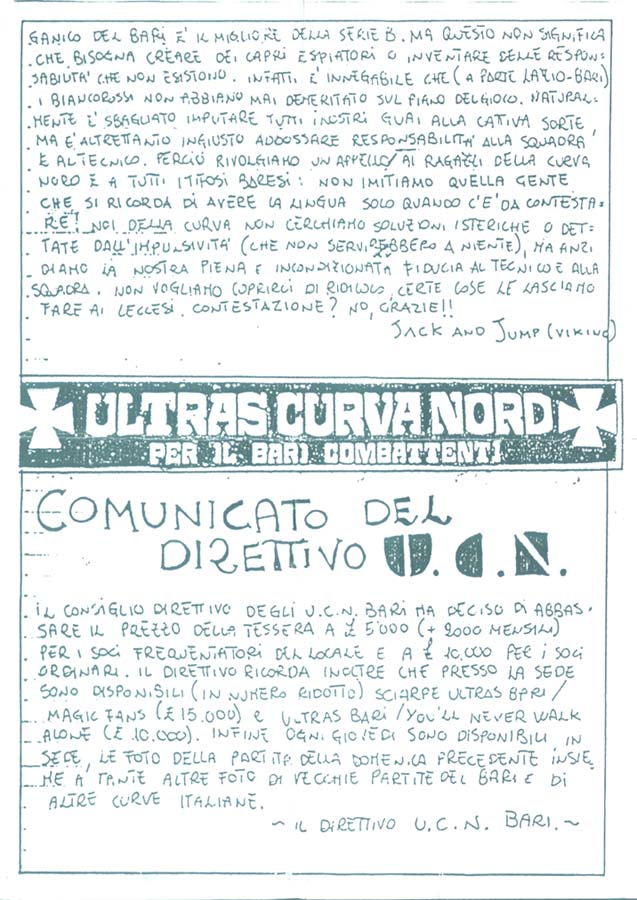 GANICO DEL BARI E' IL MIGLIORE DELLA SERIE B. MA QUESTO NON SIGNIFICA
CHE BISOGNA CREARE DEI CAPRI ESPIATORI O INVENTARE DELLE RESPON=
SABILITA' CHE NON ESISTONO. INFATTI E' INNEGABILE CHE (A PARTE LAZIO-BARI)
I BIANCOROSSI NON ABBIANO MAI DEMERITATO SUL PIANO DEL GIOCO. NATURAL=
MENTE E' SBAGLIATO IMPUTARE TUTTI I NOSTRI GUAI ALLA CATIVA SORTE,
MA E' ALTRETTANTO INGIUSTO ADDOSSARE RESPONSABILITA' ALLA SQUADRA
E AL TECNICO. PERCIO' RIVOLGIAMO UN APPELLO AI RAGAZZI DELLA CURVA
NORD E A TUTTI I TIFOSI BARESI: NON IMITIAMO QUELLA GENTE
CHE SI RICORDA DI AVERE LA LINGUA SOLO QUANDO C'E' DA CONTESTA=
RE! NOI DELLA CURVA NON CERCHIAMO SOLUZIONI ISTERICHE O DET=
TATE DALL'IMPULSIVITA' (CHE NON SERVIREBBERO A NIENTE), MA ANZI
DIAMO LA NOSTRA PIENA E INCONDIZIONATA FIDUCIA AL TECNICO E ALLA
SQUADRA. NON VOGLIAMO COPRIRCI DI RIDICOLO, CERTE COSE LE LASCIAMO
FARE AI LECCESI. CONTESTAZIONE? NO, GRAZIE!!
JACK AND JUMP (VIKING)
ULTRAS CURVA NORD
PER IL BARI COMBATTENTI
COMUNICATO DEL
DIRETTIVO U.C.N.
IL CONSIGLIO DIRETTIVO DEGLI U.C.N. BARI HA DECISO DI ABBAS=
SARE IL PREZZO DELLA TESSERA A £ 5000 (+ 2000 MENSILI)
PER I SOCI FREQUENTATORI DEL LOCALE E A £ 10.000 PER I SOCI
ORDINARI. IL DIRETTIVO RICORDA INOLTRE CHE PRESSO LA SEDE
SONO DISPONIBILI (IN NUMERO RIDOTTO) SCIARPE ULTRAS BARI/
MAGIC FANS (£ 15.000) E ULTRAS BARI/YOU'LL NEVER WALK
ALONE (£ 10.000). INFINE OGNI GIOVEDI SONO DISPONIBILI, IN
SEDE, LE FOTO DELLA PARTITA DELLA DOMENICA PRECEDENTE INSIE
ME A TANTE ALTRE FOTO DI VECCHIE PARTITE DEL BARI E DI
ALTRE CURVE ITALIANE.
~ IL DIRETTIVO U.C.N. BARI. ~